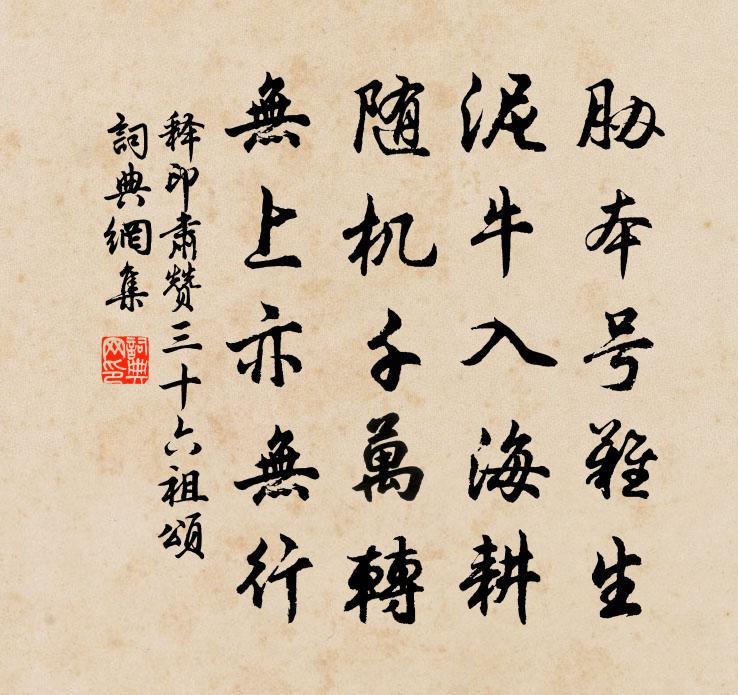 胁本号难生
泥牛入海耕
随机千萬轉
無上亦無行
释印肃赞三十六祖頌
詞典網集
詞典网印